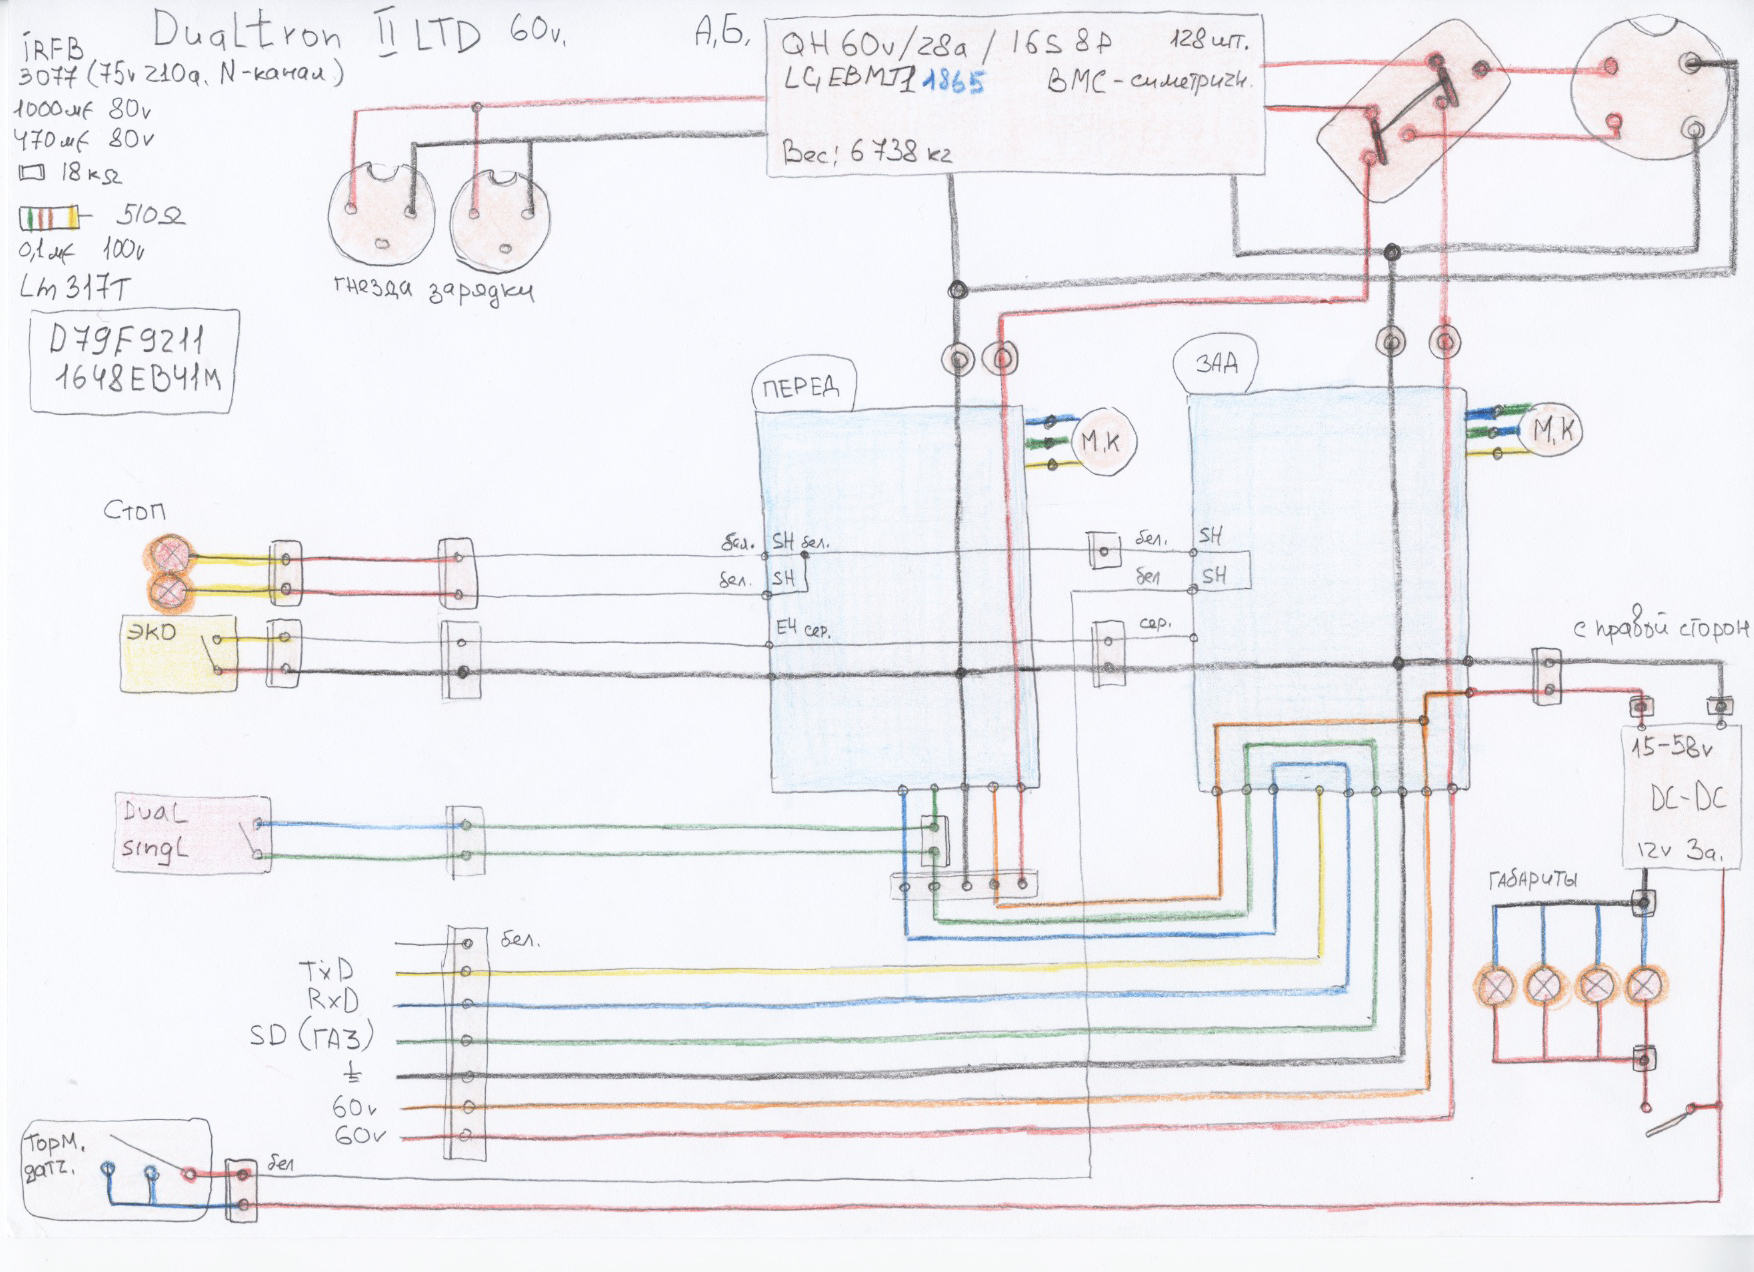 Dualtron II LTD 60v.
iRFB
3077 (75v 210a. N-канал)
1000мf 80v
470мf 80v
18кΩ
510Ω
0,1мf 100v
Lm 317T
D79F9211
1648EB41M
А,Б,
QH 60v/28a / 16S 8P 128шт.
LGEBMJ1 1865 ВМС-симетричн.
Вес; 6738кг
гнезда зарядки
ПЕРЕД
ЗАД
М,К
М,К
Стоп
бел. SH бел.
бел. SH
бел. SH
бел SH
ЭКО
E4 сер.
сер.
с правой сторон
15-58v
DC-DC
12v 3a.
Dual
singL
габариты
бел.
TxD
RxD
SD (ГАЗ)
60v
60v
Торм.
датч.
бел